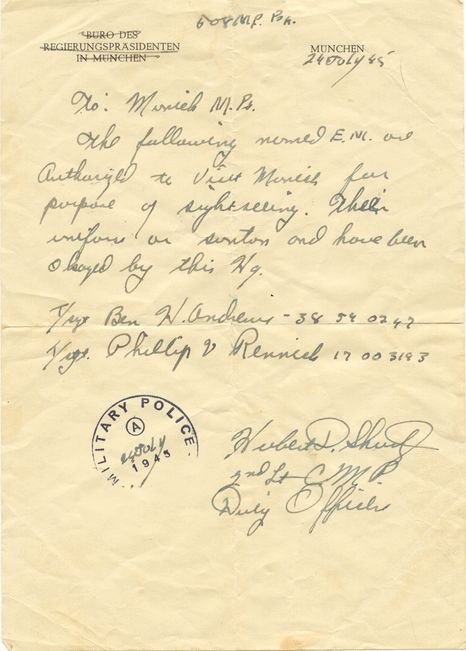 508 M.P. Bn.
BÜRO DES
REGIERUNGSPRÄSIDENTEN
IN MÜNCHEN
MÜNCHEN
24 JULY 45
To: Munich M.Ps.
The following named E.M. are
Authorized to Visit Munich for
purpose of sightseeing. Their
uniform and have been
Okayed by this Hq.
T/Sgt Ben W. Andrews - 38 54 0247
T/Sgt. Phillip V Rennick 17 003193
MILITARY POLICE
A
24 JULY
1945
Hubert D.
2nd Lt C.M.P.
Duty Officer